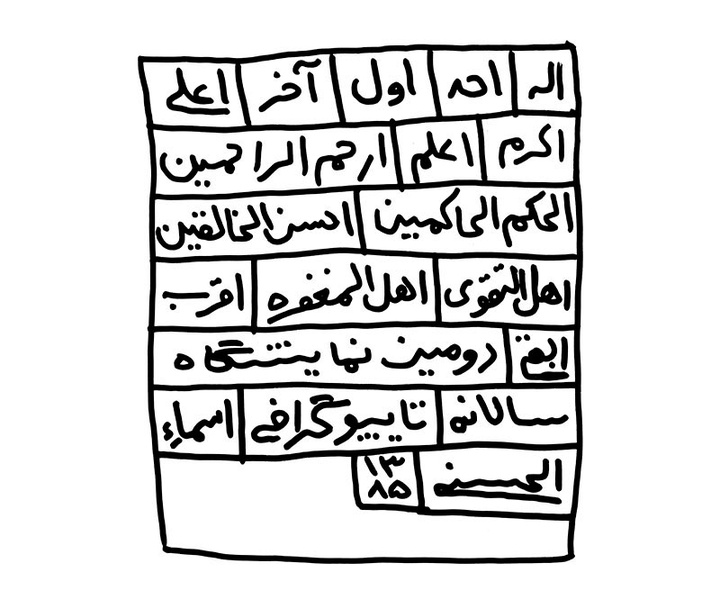 اله احد اول آخر اعلی
اکرم اعلم ارحم الراحمین
الحکم الحاکمین احسن الخالقین
اهل التقوی اهل المغفره اقرب
ابقی دومین نمایشگاه
سالانه تایپوگرافی اسماء
الحسنی ۱۳۸۵